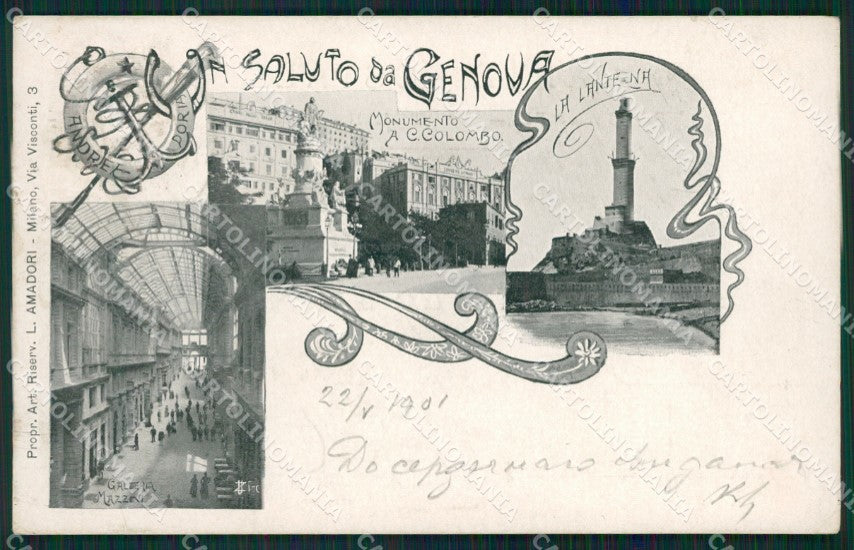 UN SALUTO da GENOVA
ANDREA DORIA
MONUMENTO
A C. COLOMBO.
LA LANTERNA
GALERIA
MAZZINI
Propr. Art. Riserv. L. AMADORI - Milano, Via Visconti, 3
22/V 1901
Do
CARTOLINOMANIA